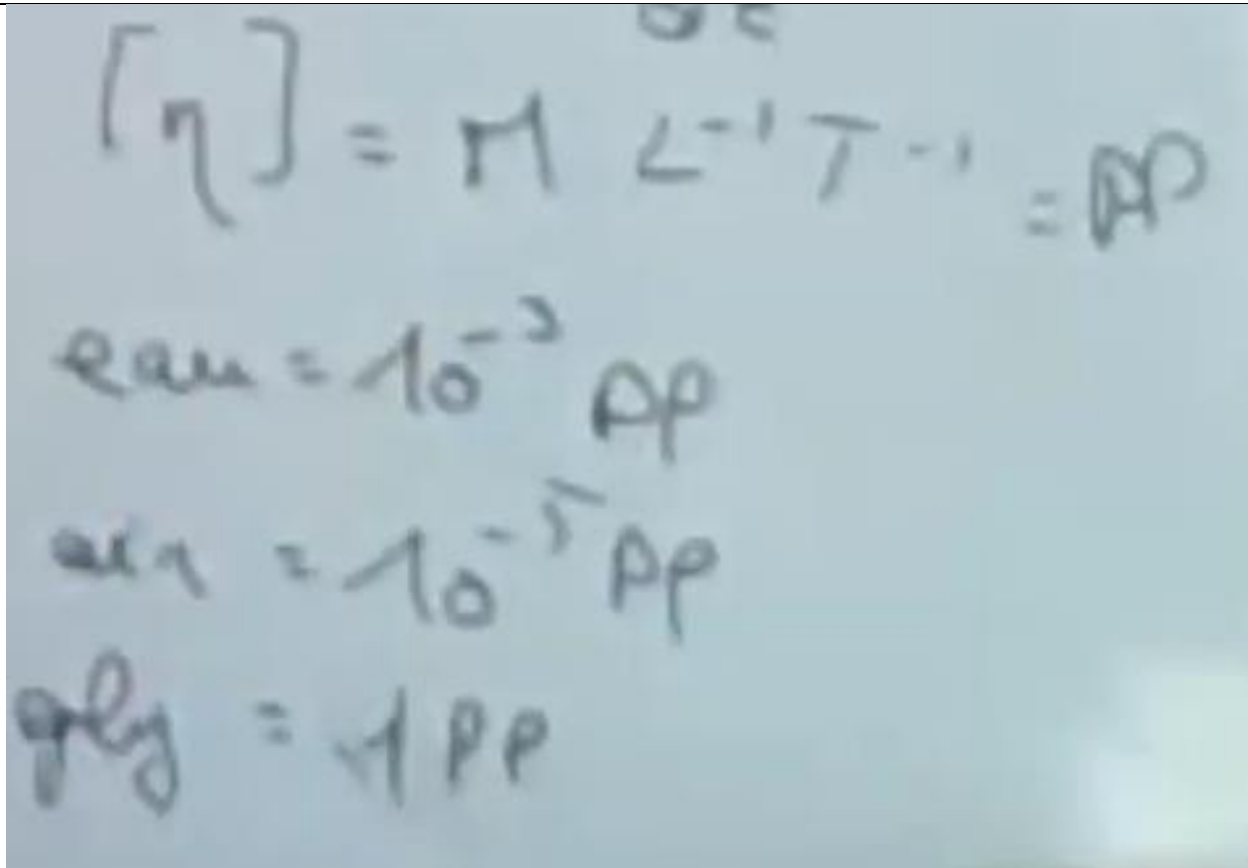 [η] = M L⁻¹ T⁻¹ = PP
eau = 10⁻³ Pp
air = 10⁻⁵ Pp
gly = 1 PP